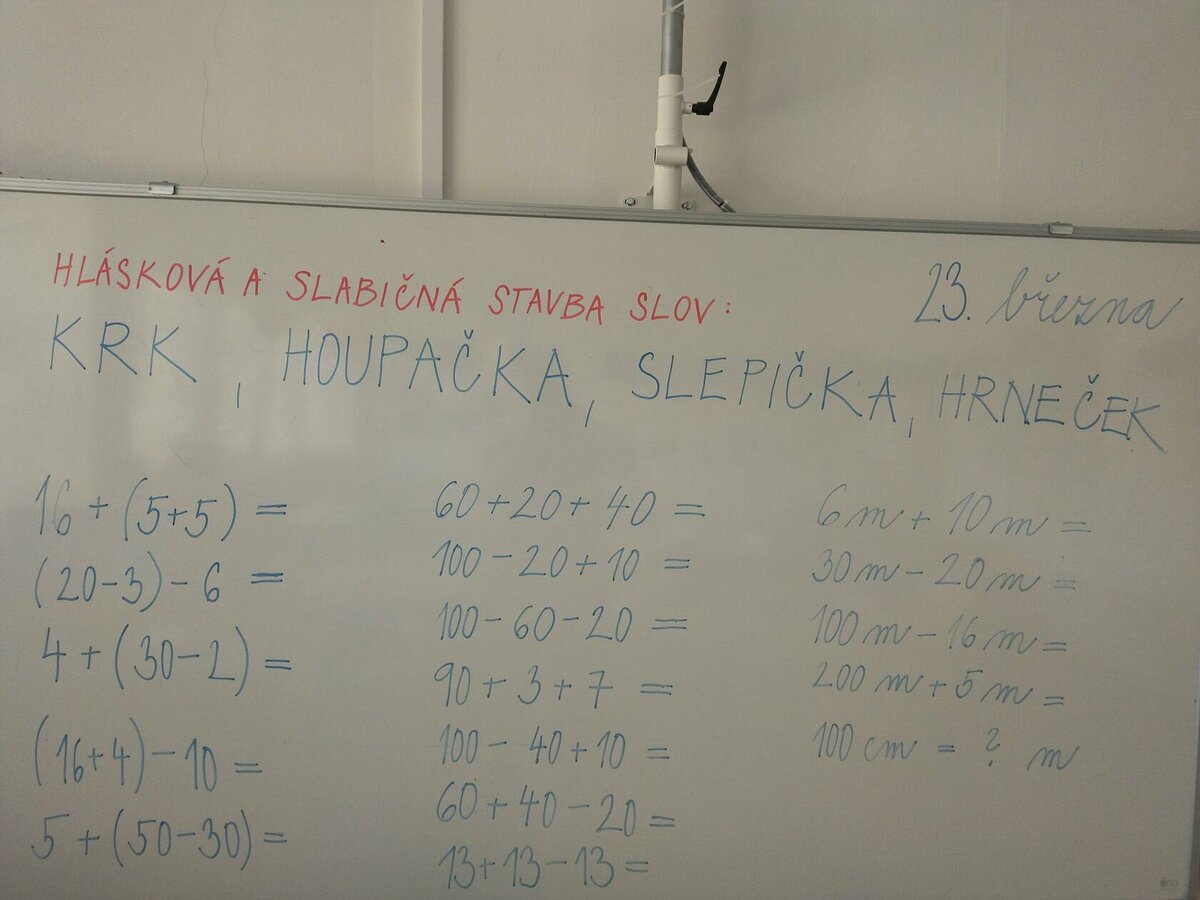 HLÁSKOVÁ A SLABIČNÁ STAVBA SLOV:
23. března
KRK, HOUPAČKA, SLEPIČKA, HRNEČEK
16 + (5+5) =
(20-3) - 6 =
4 + (30-2) =
(16+4) - 10 =
5 + (50-30) =
60 + 20 + 40 =
100 - 20 + 10 =
100 - 60 - 20 =
90 + 3 + 7 =
100 - 40 + 10 =
60 + 40 - 20 =
13 + 13 - 13 =
6 m + 10 m =
30 m - 20 m =
100 m - 16 m =
200 m + 5 m =
100 cm = ? m